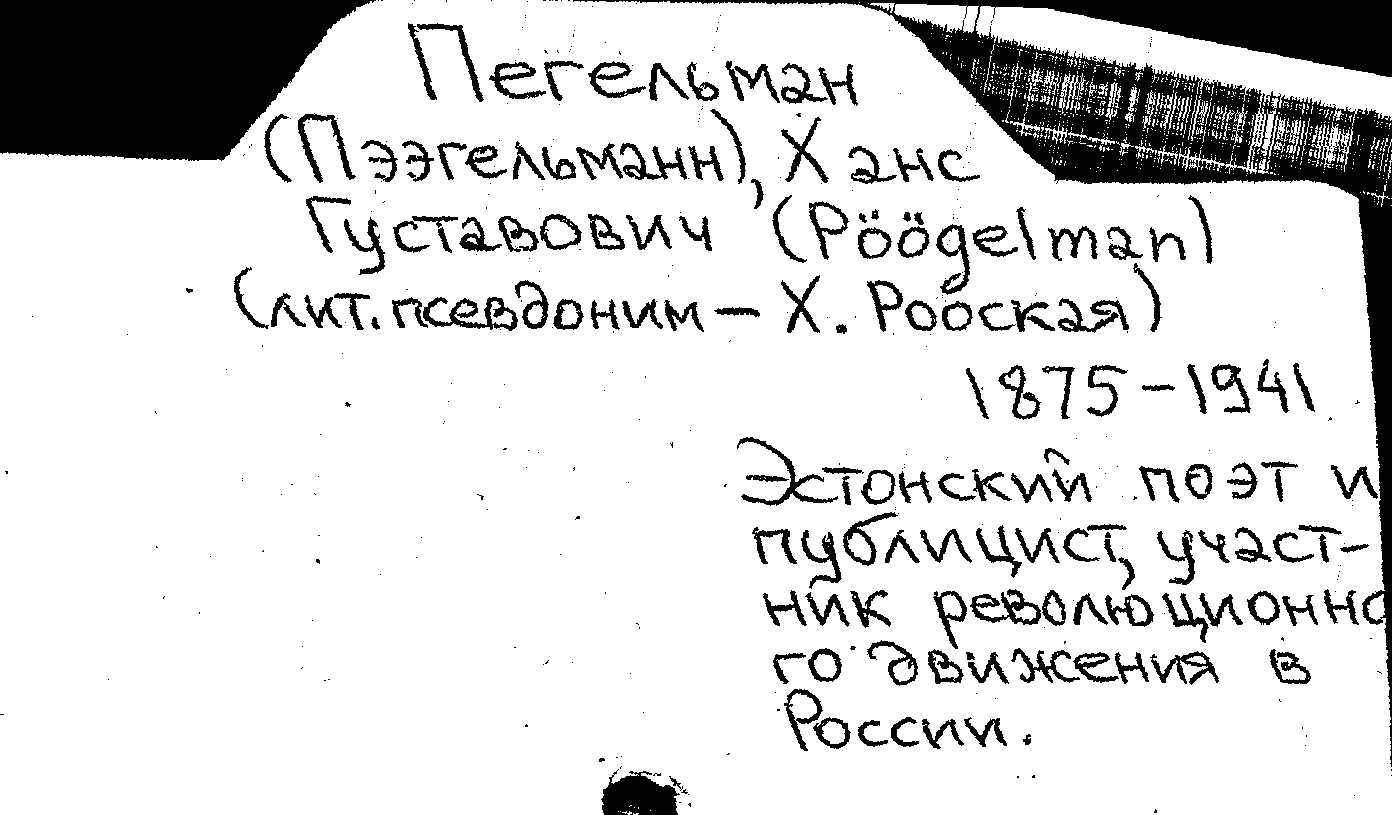 Пегельман
(Пээгельманн), Ханс
Густавович (Pöögelman)
(лит. псевдоним – Х. Рооская)
1875-1941
Эстонский поэт и
публицист, участ-
ник революционно
го движения в
России.